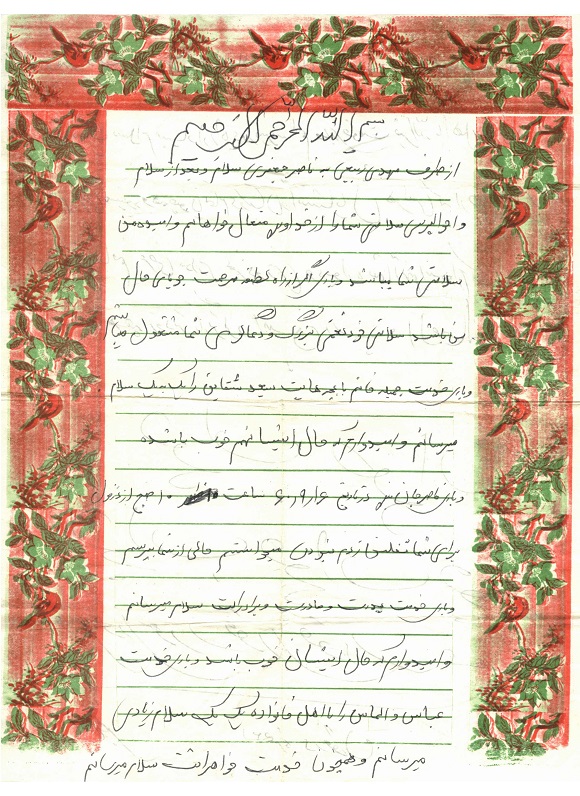 بسم الله الرحمن الرحیم
از طرف مهدی ربیعی به ناصر جعفری سلام و بعد از سلام
و احوالپرسی سلامتی شما را از خداوند متعال خواهانم و امیدوارم
سلامتی شما باشد و باری اگر از راه لطف و مرحمت جویای حال
باشید سلامتی خود نعمتی بزرگ و دعاگویی شما مشغول میباشم
و باری خدمت جمیله خانم با بچه‌هایت سعید شقایق را یک یک سلام
میرسانم و امیدوارم که حال ایشان هم خوب باشد
و باری ناصر جان من در تاریخ ساعت ۱۰ صبح از دزفول
برای شما تلفن زدم نبودی میخواستم حالی از شما بپرسم
و باری خدمت پدرت و مادرت و برادرات سلام میرسانم
و امیدوارم که حال ایشان خوب باشد و باری خدمت
عباس و الماس را با اهل خانواده یک یک سلام زیادی
میرسانم و همچنون خدمت خواهرانت سلام میرسانم